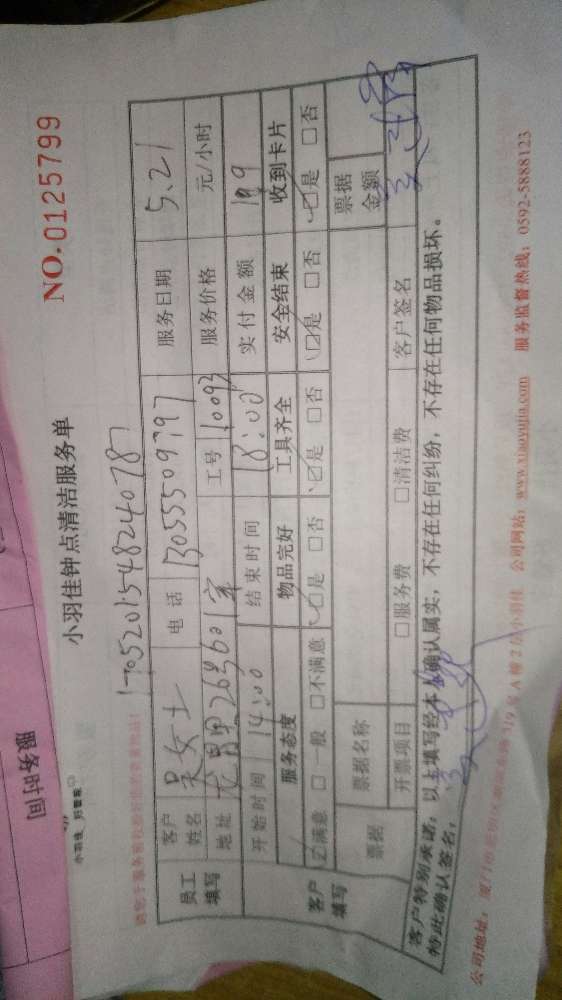 小羽佳钟点清洁服务单
NO.0125799
小羽佳
员工填写
客户姓名
吴女士
电话
13055509797
服务日期
5.21
地址
工号
10093
服务价格
元/小时
开始时间
14:00
结束时间
18:00
实付金额
客户填写
服务态度
物品完好
工具齐全
安全结束
收到卡片
☑满意 □一般 □不满意
☑是 □否
☑是 □否
☑是 □否
☑是 □否
票据
票据名称
票据金额
开票项目
□服务费 □清洁费
客户签名
客户特别承诺：以上填写经本人确认属实，不存在任何纠纷，不存在任何物品损坏。
特此确认签名：
公司地址：
公司网站：www.xiaoyujia.com
服务监督热线：0592-5888123
服务时间